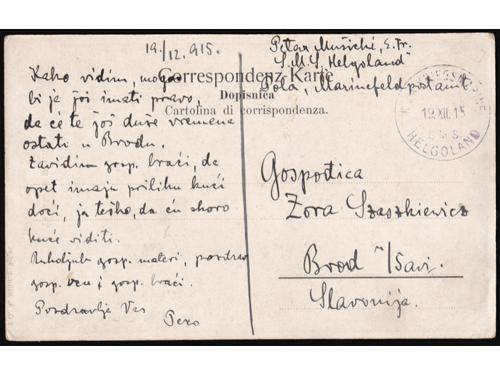 19./12. 915.
Petar Mušicki, E. Fr.
S. M. S. "Helgoland"
Pola, Marinefeldpostamt
Correspondenz-Karte
Dopisnica
Cartolina di corrispondenza.
19.XII.15
S.M.S.
HELGOLAND
Kako vidim, mogao
bi je još imati pravo,
da će te još duže vremena
ostati u Brodu.
Zavidim gosp. braći, da
opet imaju priliku kući
doći, ja teško, da ću skoro
kuće viditi.
Rukoljub gosp. materi, pozdrav
gosp. ocu i gosp. braći.
Pozdravlja Vas
Pero
Gospođica
Zora Szaszkiewicz
Brod n/Savi.
Slavonija.